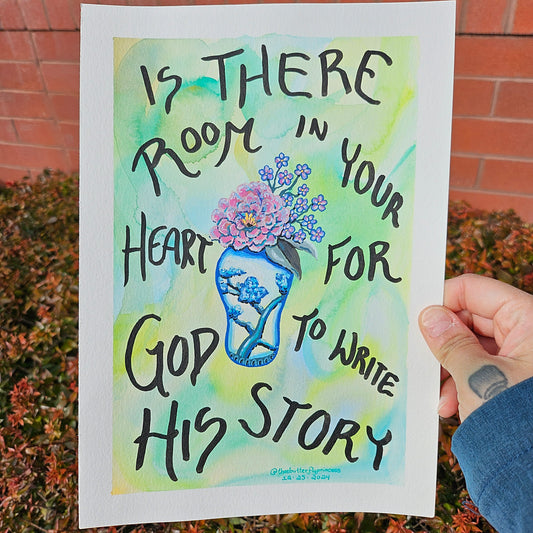 IS THERE
ROOM IN YOUR
HEART FOR
GOD TO WRITE
HIS STORY
12.23.2024